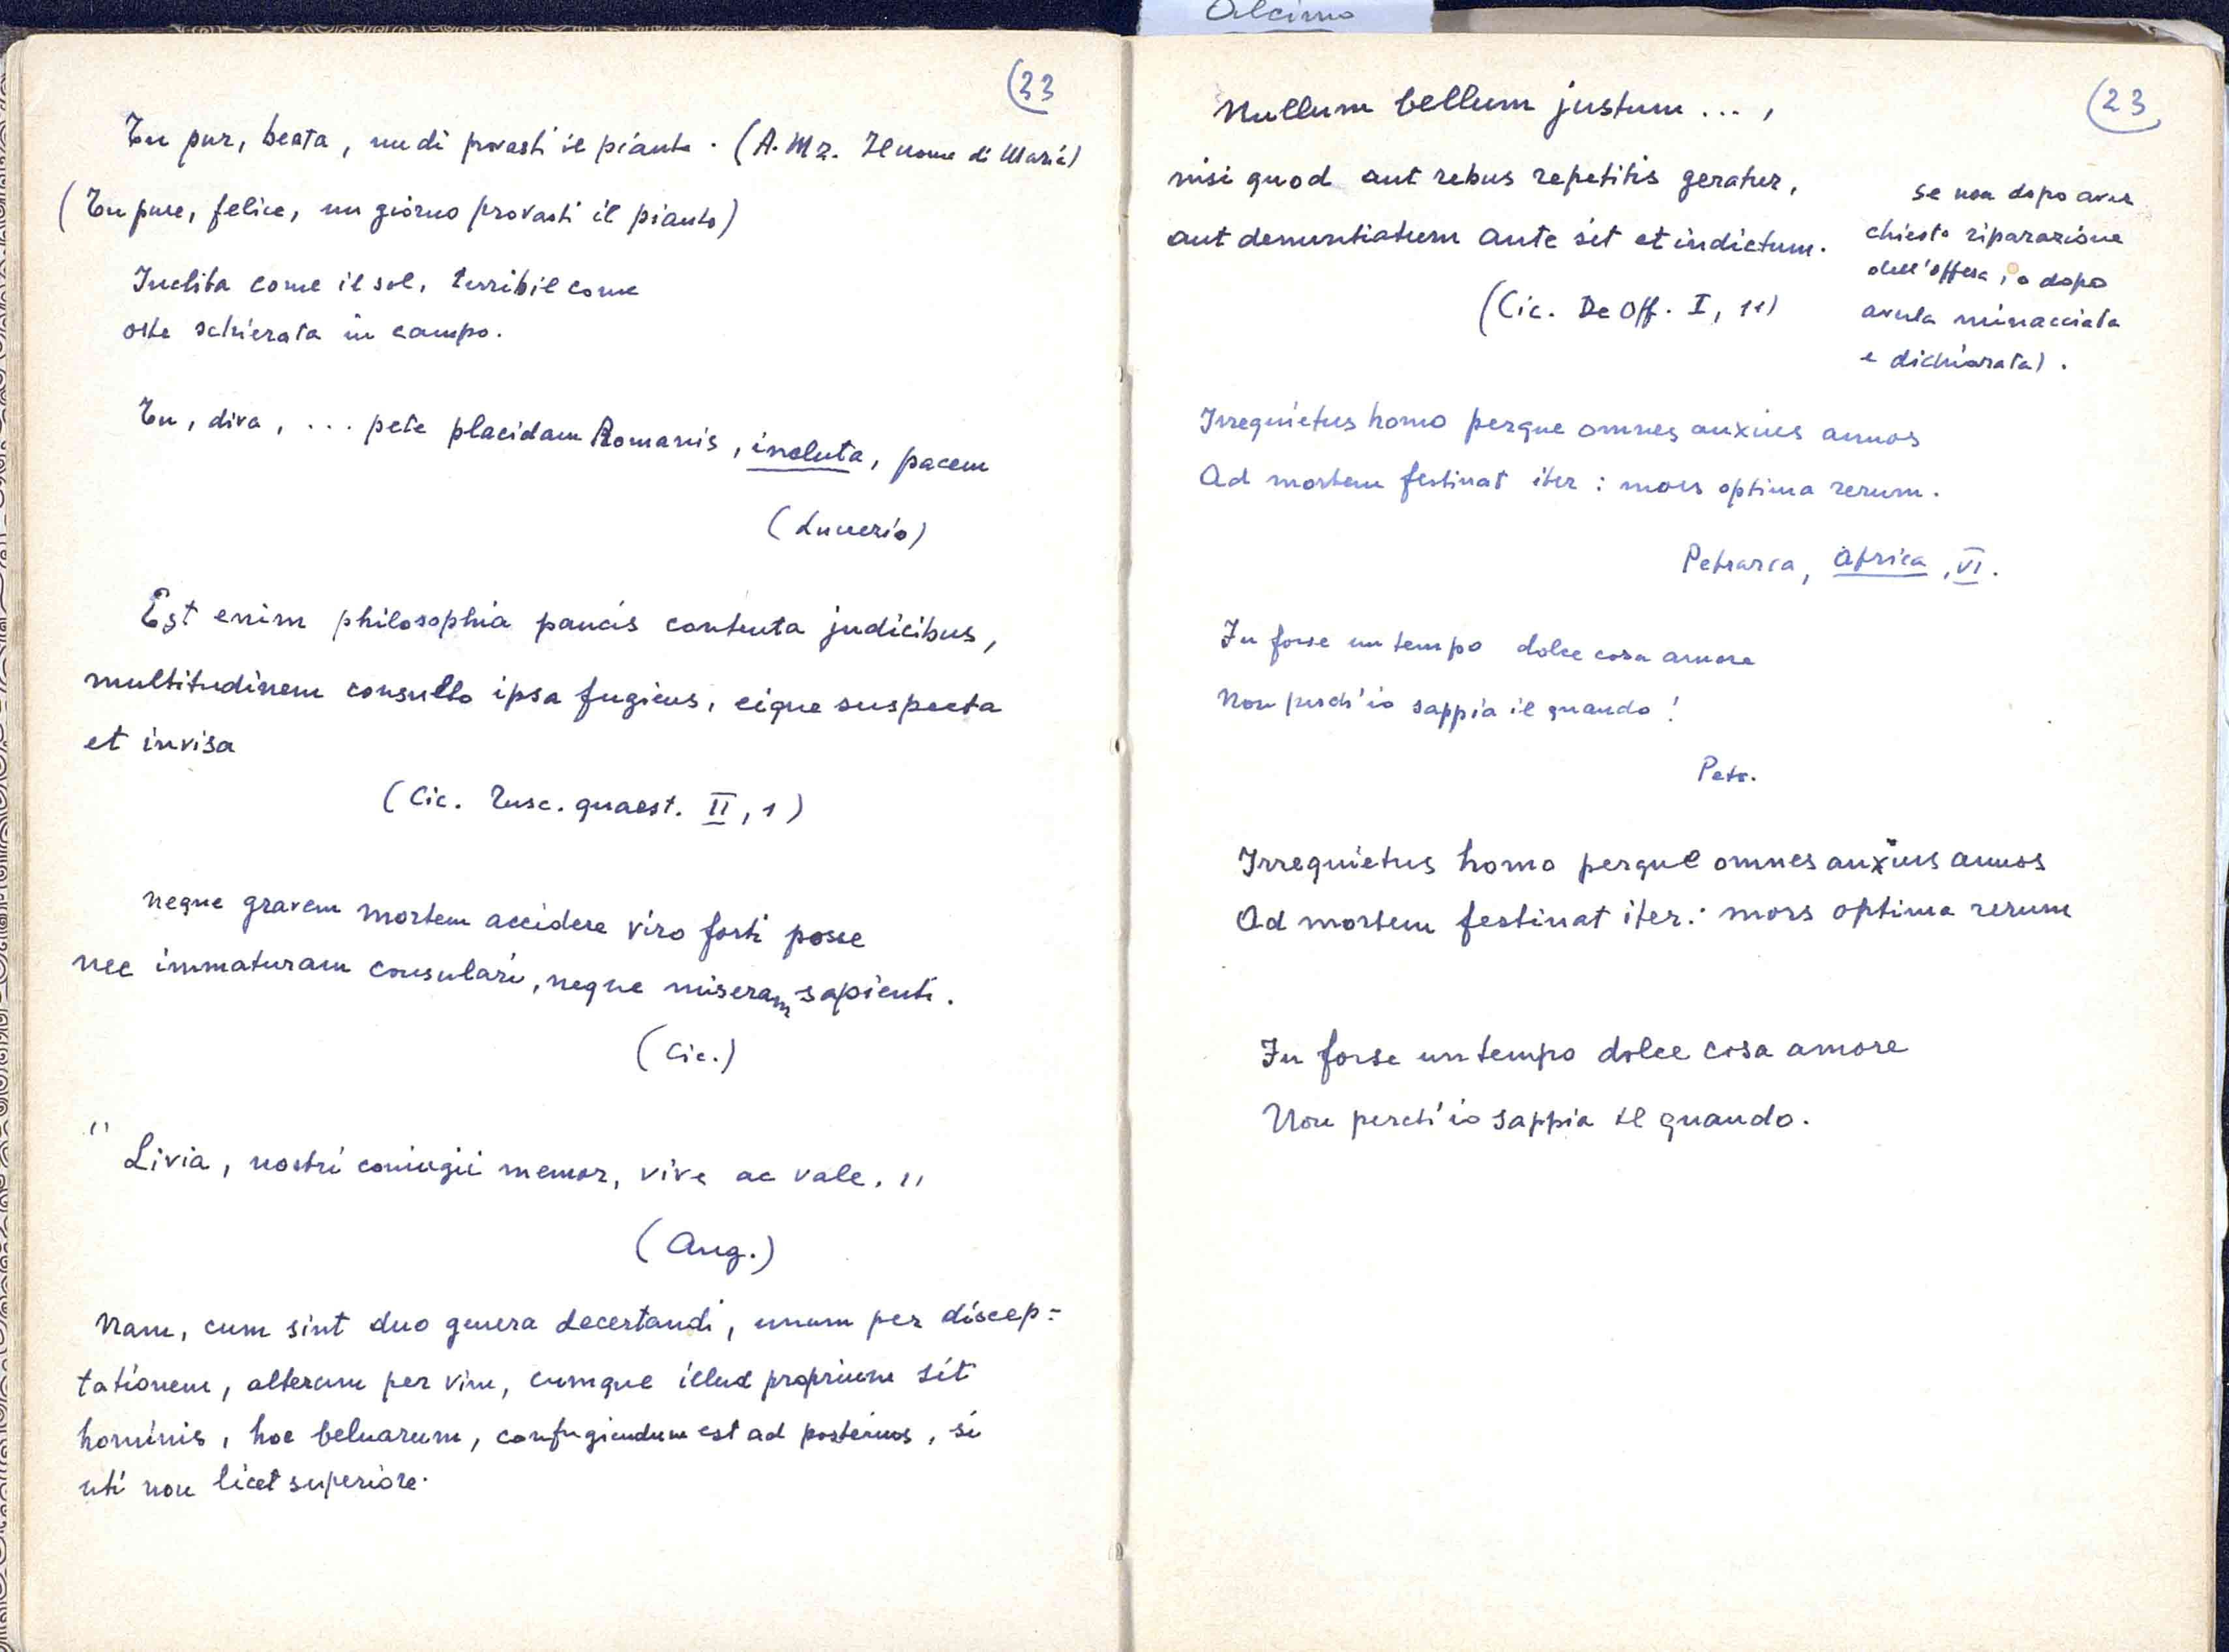 (33
Tu pur, beata, un dì provasti il pianto. (A. Mz. Il nome di Maria)
(Tu pure, felice, un giorno provasti il pianto)
Inclita come il sol, terribil come
oste schierata in campo.
Tu, diva, ... pete placidam Romanis, incluta, pacem
(Lucrezio)
Est enim philosophia paucis contenta judicibus,
multitudinem consulto ipsa fugiens, eique suspecta
et invisa
(Cic. Tusc. quaest. II, 1)
neque gravem mortem accidere viro forti posse
nec immaturam consulari, neque miseram sapienti.
(Cic.)
" Livia, nostri coniugii memor, vive ac vale. "
(Aug.)
Nam, cum sint duo genera decertandi, unum per discep=
tationem, alterum per vim, cumque illud proprium sit
hominis, hoc beluarum, confugiendum est ad posterius, si
uti non licet superiore.
Alcimo
(23
Nullum bellum justum ... ,
nisi quod aut rebus repetitis geratur,
aut denuntiatum ante sit et indictum.
(Cic. De Off. I, 11)
se non dopo aver
chiesto riparazione
dell'offesa, o dopo
averla minacciata
e dichiarata).
Irrequietus homo perque omnes anxius annos
Ad mortem festinat iter : mors optima rerum.
Petrarca, Africa, VI.
Fu forse un tempo dolce cosa amore
Non perch'io sappia il quando !
Petr.
Irrequietus homo perque omnes anxius annos
Ad mortem festinat iter : mors optima rerum
Fu forse un tempo dolce cosa amore
Non perch'io sappia il quando.